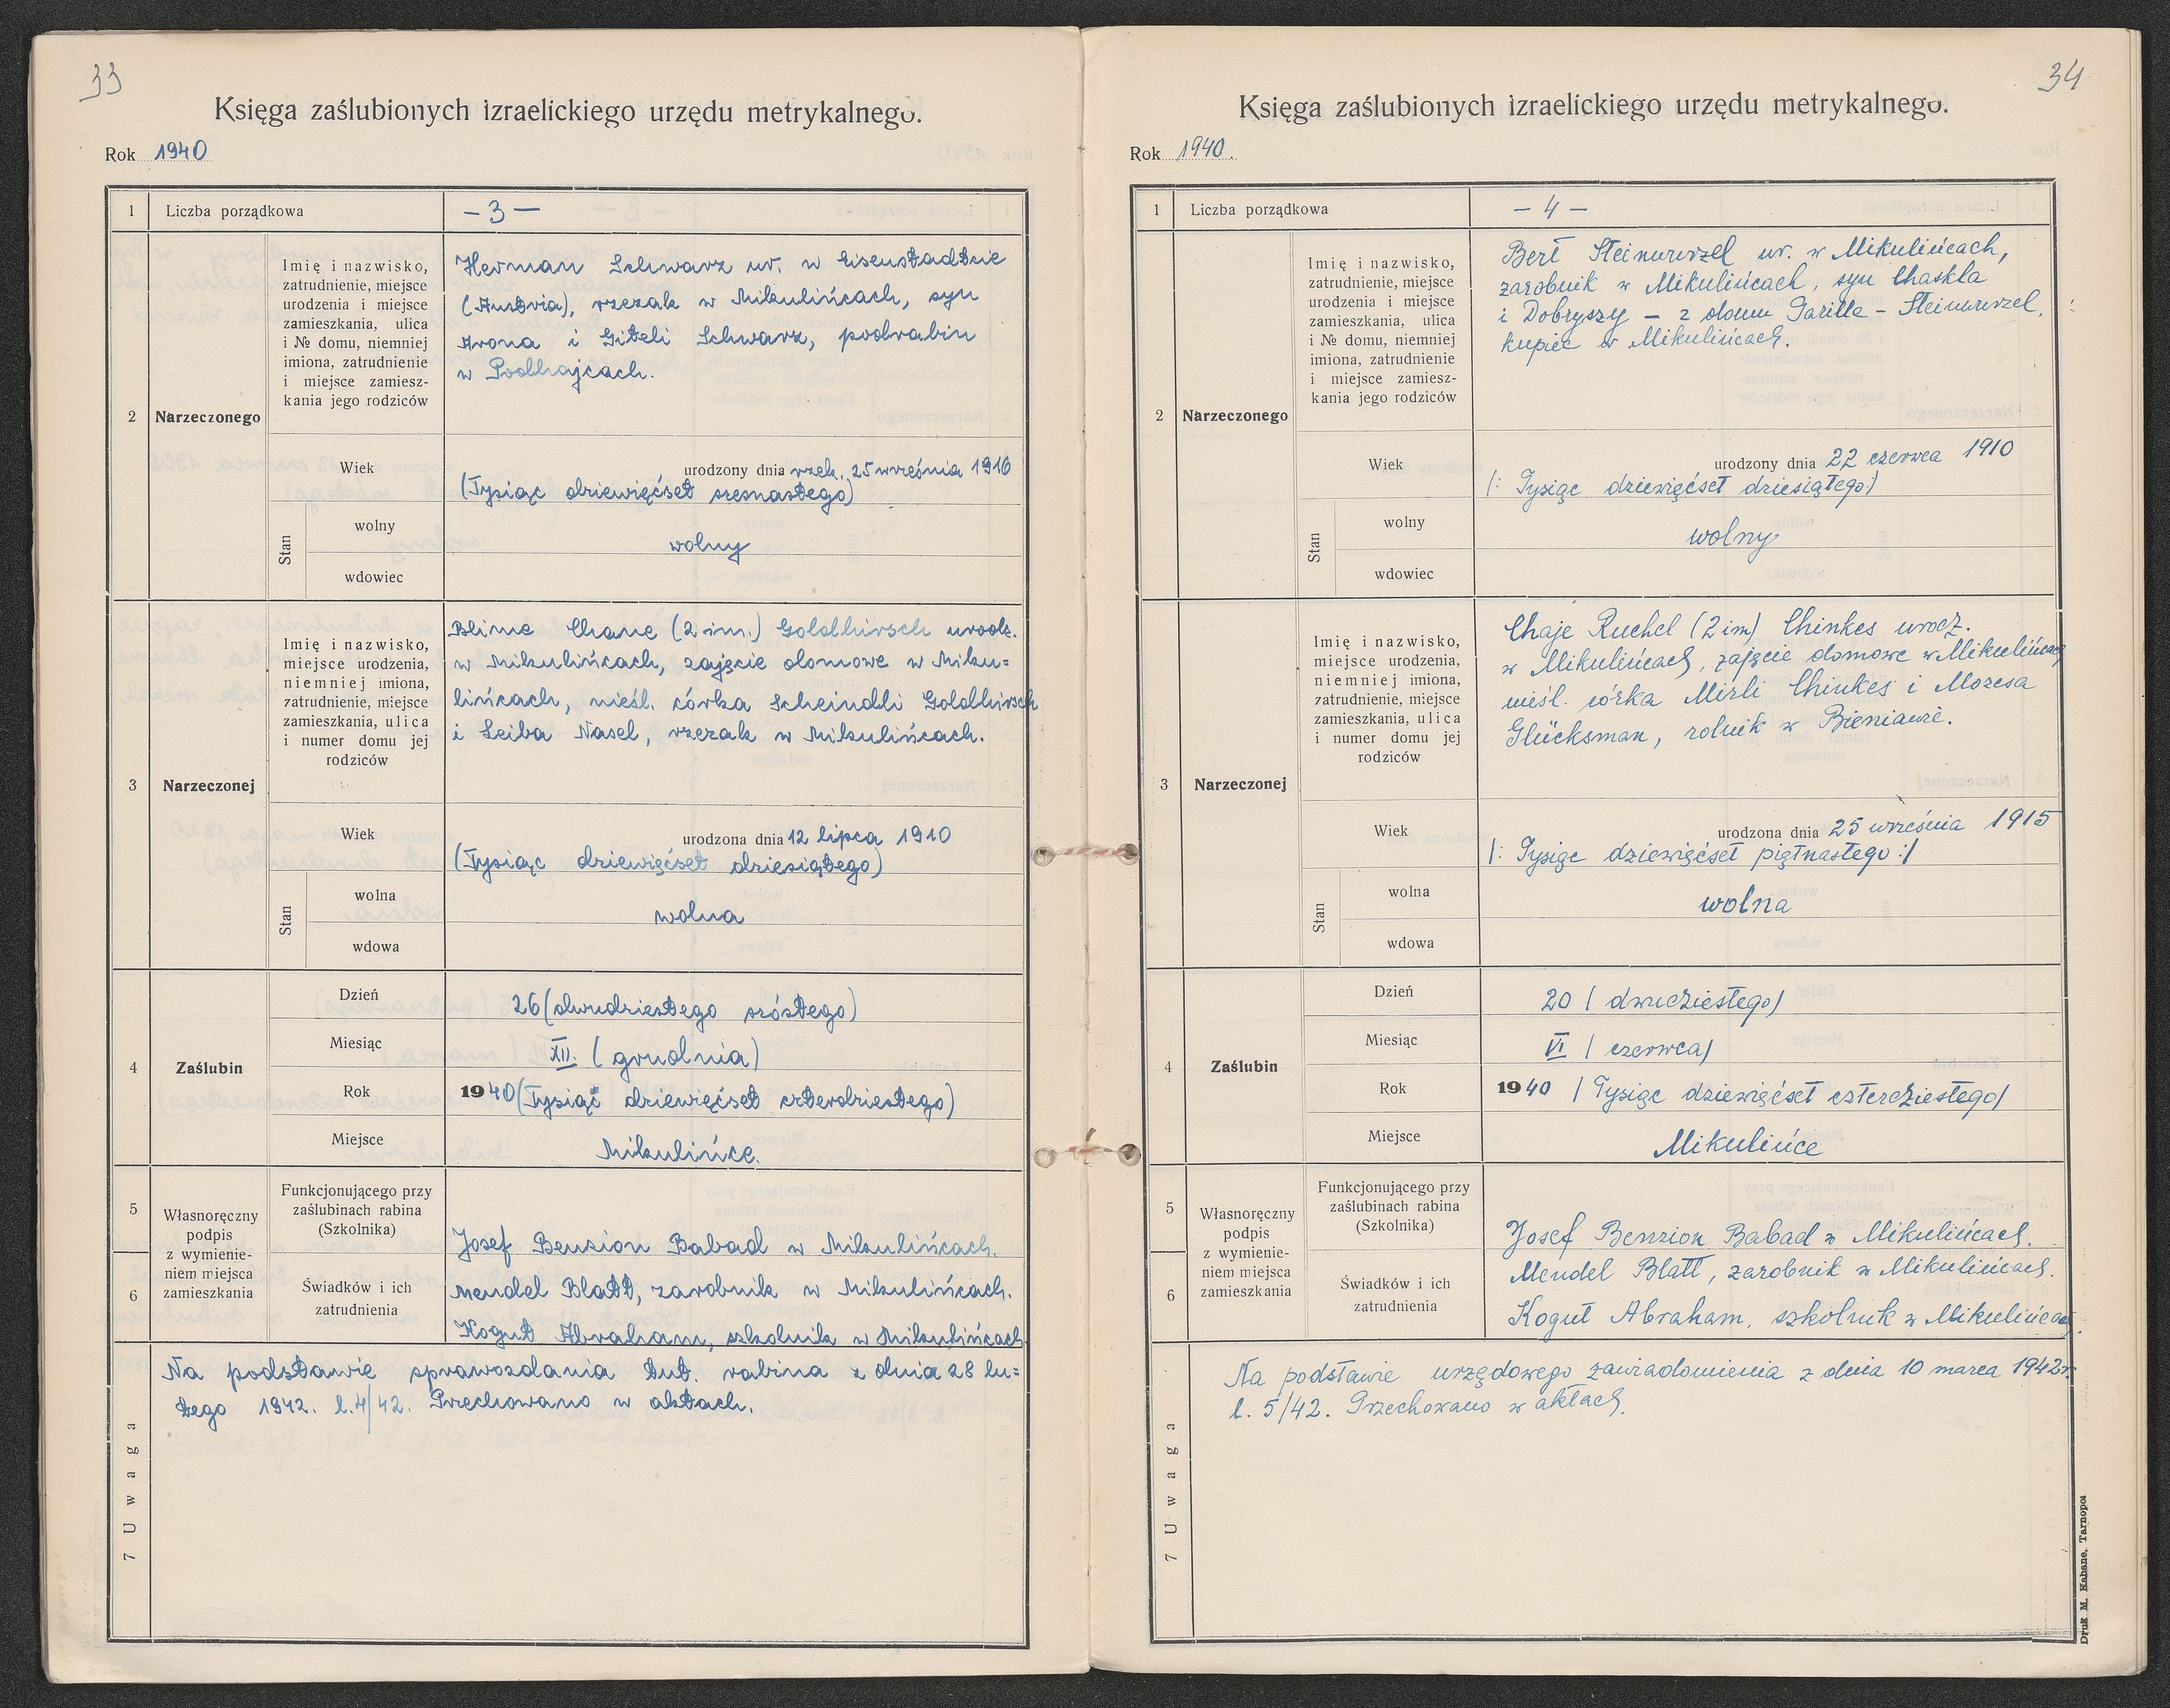 33
Księga zaślubionych izraelickiego urzędu metrykalnego.
Rok 1940
1 Liczba porządkowa - 3 -
2 Narzeczonego
Imię i nazwisko,
zatrudnienie, miejsce
urodzenia i miejsce
zamieszkania, ulica
i № domu, niemniej
imiona, zatrudnienie
i miejsce zamiesz-
kania jego rodziców
Herman Schwarz ur. w Eisenstadtcie
(Austria), rzezak w Mikulińcach, syn
Arona i Giteli Schwarz, podrabin
w Podhajcach.
Wiek
urodzony dnia rzek. 25 września 1916
(Tysiąc dziewięćset szesnastego)
Stan
wolny
wolny
wdowiec
3 Narzeczonej
Imię i nazwisko,
miejsce urodzenia,
niemniej imiona,
zatrudnienie, miejsce
zamieszkania, ulica
i numer domu jej
rodziców
Blime Chane (2 im.) Goldhirsch urodz.
w Mikulińcach, zajęcie domowe w Miku=
lińcach, nieśl. córka Scheindli Goldhirsch
i Leiba Nasel, rzezak w Mikulińcach.
Wiek
urodzona dnia 12 lipca 1910
(Tysiąc dziewięćset dziesiątego)
Stan
wolna
wolna
wdowa
4 Zaślubin
Dzień 26 (dwudziestego szóstego)
Miesiąc XII. (grudnia)
Rok 1940 (Tysiąc dziewięćset czterdziestego)
Miejsce Mikulińce.
5
6
Własnoręczny
podpis
z wymienie-
niem miejsca
zamieszkania
Funkcjonującego przy
zaślubinach rabina
(Szkolnika)
Josef Benzion Babad w Mikulińcach.
Świadków i ich
zatrudnienia
Mendel Blatt, zarobnik w Mikulińcach.
Kogut Abraham, szkolnik w Mikulińcach
7 Uwaga
Na podstawie sprawozdania tut. rabina z dnia 28 lu=
tego 1942. l. 4/42. Przechowano w aktach.
34
Księga zaślubionych izraelickiego urzędu metrykalnego.
Rok 1940.
1 Liczba porządkowa - 4 -
2 Narzeczonego
Imię i nazwisko,
zatrudnienie, miejsce
urodzenia i miejsce
zamieszkania, ulica
i № domu, niemniej
imiona, zatrudnienie
i miejsce zamiesz-
kania jego rodziców
Berł Steinwurzel ur. w Mikulińcach,
zarobnik w Mikulińcach, syn Chaskla
i Dobryszy - z domu Parille - Steinwurzel,
kupiec w Mikulińcach.
Wiek
urodzony dnia 22 czerwca 1910
/: Tysiąc dziewięćset dziesiątego:/
Stan
wolny
wolny
wdowiec
3 Narzeczonej
Imię i nazwisko,
miejsce urodzenia,
niemniej imiona,
zatrudnienie, miejsce
zamieszkania, ulica
i numer domu jej
rodziców
Chaje Ruchel (2 im) Chinkes urodz.
w Mikulińcach, zajęcie domowe w Mikulińcach
nieśl. córka Mirli Chinkes i Mozesa
Glücksman, rolnik w Bieniawie.
Wiek
urodzona dnia 25 września 1915
/: Tysiąc dziewięćset piętnastego :/
Stan
wolna
wolna
wdowa
4 Zaślubin
Dzień 20 / dwudziestego/
Miesiąc VI / czerwca/
Rok 1940 / Tysiąc dziewięćset czterdziestego/
Miejsce Mikulińce
5
6
Własnoręczny
podpis
z wymienie-
niem miejsca
zamieszkania
Funkcjonującego przy
zaślubinach rabina
(Szkolnika)
Josef Benzion Babad w Mikulińcach.
Świadków i ich
zatrudnienia
Mendel Blatt, zarobnik w Mikulińcach.
Kogut Abraham, szkolnik w Mikulińcach.
7 Uwaga
Na podstawie urzędowego zawiadomienia z dnia 10 marca 1942 r.
l. 5/42. Przechowano w aktach.
Druk M. Kahane, Tarnopol